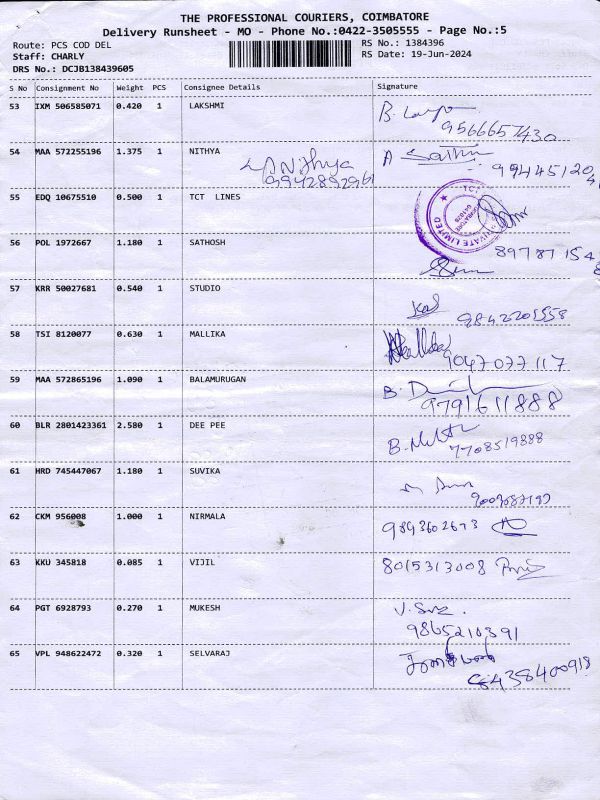 THE PROFESSIONAL COURIERS, COIMBATORE
Delivery Runsheet - MO - Phone No.:0422-3505555 - Page No.:5
Route: PCS COD DEL
Staff: CHARLY
DRS No.: DCJB138439605
RS No.: 1384396
RS Date: 19-Jun-2024
S No Consignment No Weight PCS Consignee Details Signature
53 IXM 506585071 0.420 1 LAKSHMI
9566657430
54 MAA 572255196 1.375 1 NITHYA Nithya
9942892961
99445120
55 EDQ 10675510 0.500 1 TCT LINES
PRIVATE LIMITED
56 POL 1972667 1.180 1 SATHOSH
57 KRR 50027681 0.540 1 STUDIO
9842205558
58 TSI 8120077 0.630 1 MALLIKA
9047077117
59 MAA 572865196 1.090 1 BALAMURUGAN
9791611888
60 BLR 2801423361 2.580 1 DEE PEE
7708519888
61 HRD 745447067 1.180 1 SUVIKA
62 CKM 956008 1.000 1 NIRMALA
9843602673
63 KKU 345818 0.085 1 VIJIL
8015313008
64 PGT 6928793 0.270 1 MUKESH
9865210391
65 VPL 948622472 0.320 1 SELVARAJ